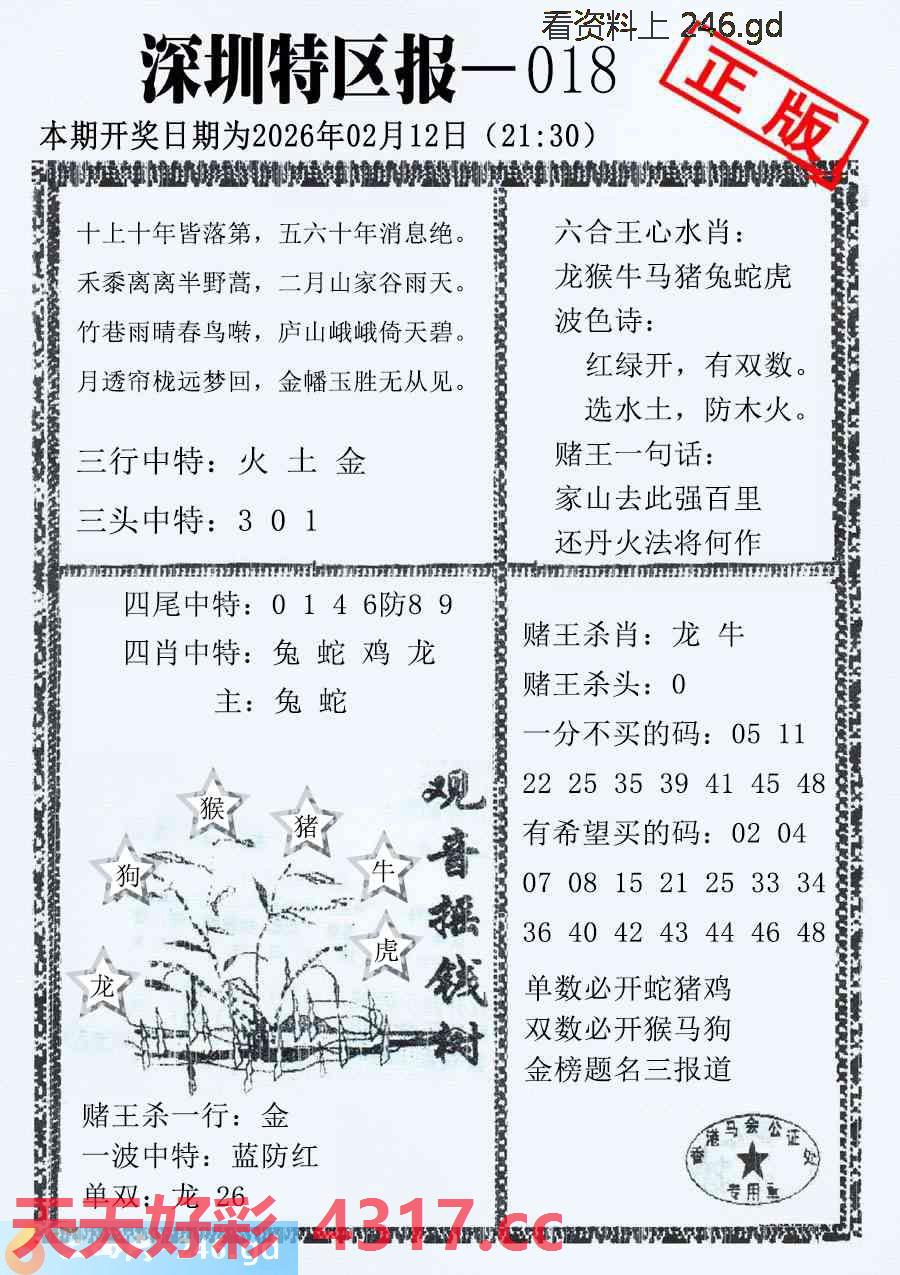 看资料上 246.gd
深圳特区报—018
正版
本期开奖日期为2026年02月12日（21:30）
十上十年皆落第，五六十年消息绝。
禾黍离离半野蒿，二月山家谷雨天。
竹巷雨晴春鸟啭，庐山峨峨倚天碧。
月透帘栊远梦回，金幡玉胜无从见。
三行中特：火 土 金
三头中特：3 0 1
六合王心水肖：
龙猴牛马猪兔蛇虎
波色诗：
红绿开，有双数。
选水土，防木火。
赌王一句话：
家山去此强百里
还丹火法将何作
四尾中特：0 1 4 6防8 9
四肖中特：兔 蛇 鸡 龙
主：兔 蛇
观音摇钱树
猴
猪
狗
牛
虎
龙
赌王杀一行：金
一波中特：蓝防红
单双：龙 26
赌王杀肖：龙 牛
赌王杀头：0
一分不买的码：05 11
22 25 35 39 41 45 48
有希望买的码：02 04
07 08 15 21 25 33 34
36 40 42 43 44 46 48
单数必开蛇猪鸡
双数必开猴马狗
金榜题名三报道
香港马会公证处
专用章
天天好彩 4317.cc
246.gd